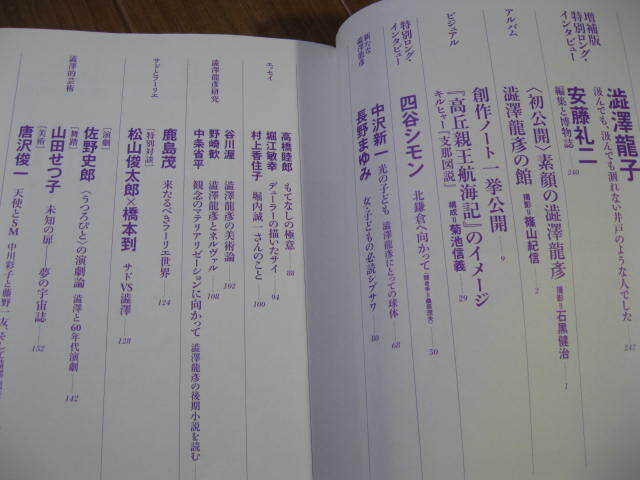 増補版
特別ロング・
インタビュー
澁澤龍子
汲んでも汲んでも涸れない井戸のような人でした
247
安藤礼二
編集と博物誌
240
アルバム
〈初公開〉素顔の澁澤龍彦
撮影=石黒健治
1
澁澤龍彦の館
撮影=篠山紀信
2
ビジュアル
創作ノート一挙公開
9
『高丘親王航海記』のイメージ
キルヒャー『支那図説』
構成=菊池信義
29
特別ロング・
インタビュー
四谷シモン
北鎌倉へ向かって
50
新たな
澁澤龍彦
中沢新一
光の子ども 澁澤龍彦にとっての球体
68
長野まゆみ
女・子どもの必読シブサワ
80
エッセイ
高橋睦郎
もてなしの極意
88
堀江敏幸
デューラーの描いたサイ
94
村上香住子
堀内誠一さんのこと
100
澁澤龍彦研究
谷川渥
澁澤龍彦の美術論
102
野崎歓
澁澤龍彦とネルヴァル
108
中条省平
観念のマテリアリゼーションに向かって 澁澤龍彦の後期小説を読む
サドとフーリエ
鹿島茂
来たるべきフーリエ世界
124
[特別対談]
松山俊太郎×橋本到
サドVS澁澤
128
澁澤的芸術
[演劇]
佐野史郎
〈うつろひと〉の演劇論 澁澤と60年代演劇
142
[舞踏]
山田せつ子
未知の扉——夢の宇宙誌
152
[美術]
唐沢俊一
天使とSM 中川彩子と藤野一友、そして